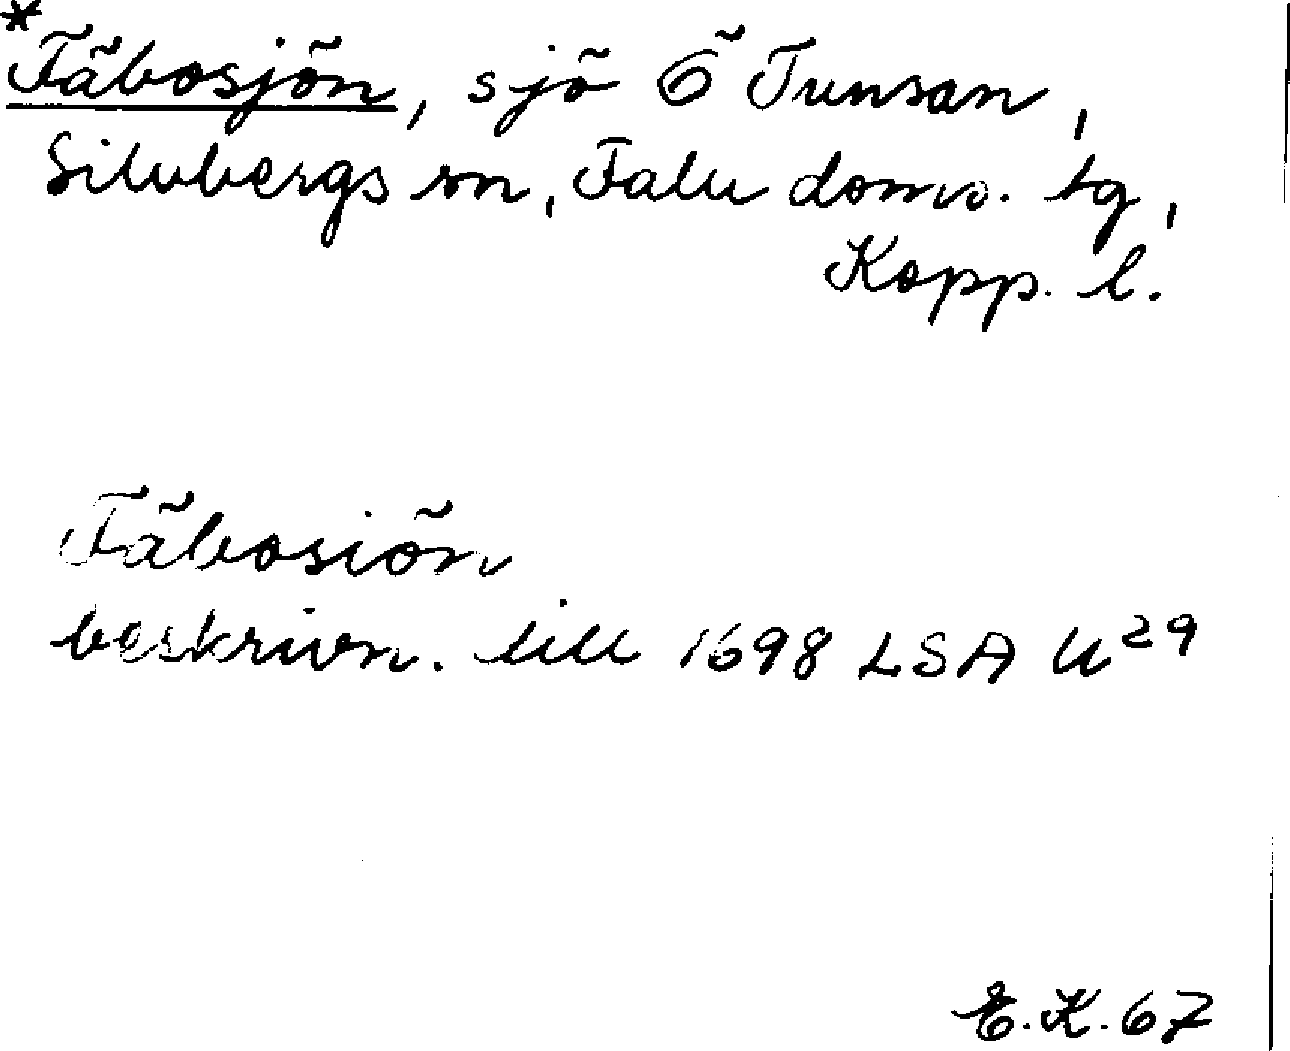 *Fäbosjön, sjö Ö Tunsan,
Silvbergs sn, Falu doms. tg,
Kopp. l.
Fäbosiön
beskrivn. till 1698 LSA U 29
E.K. 67